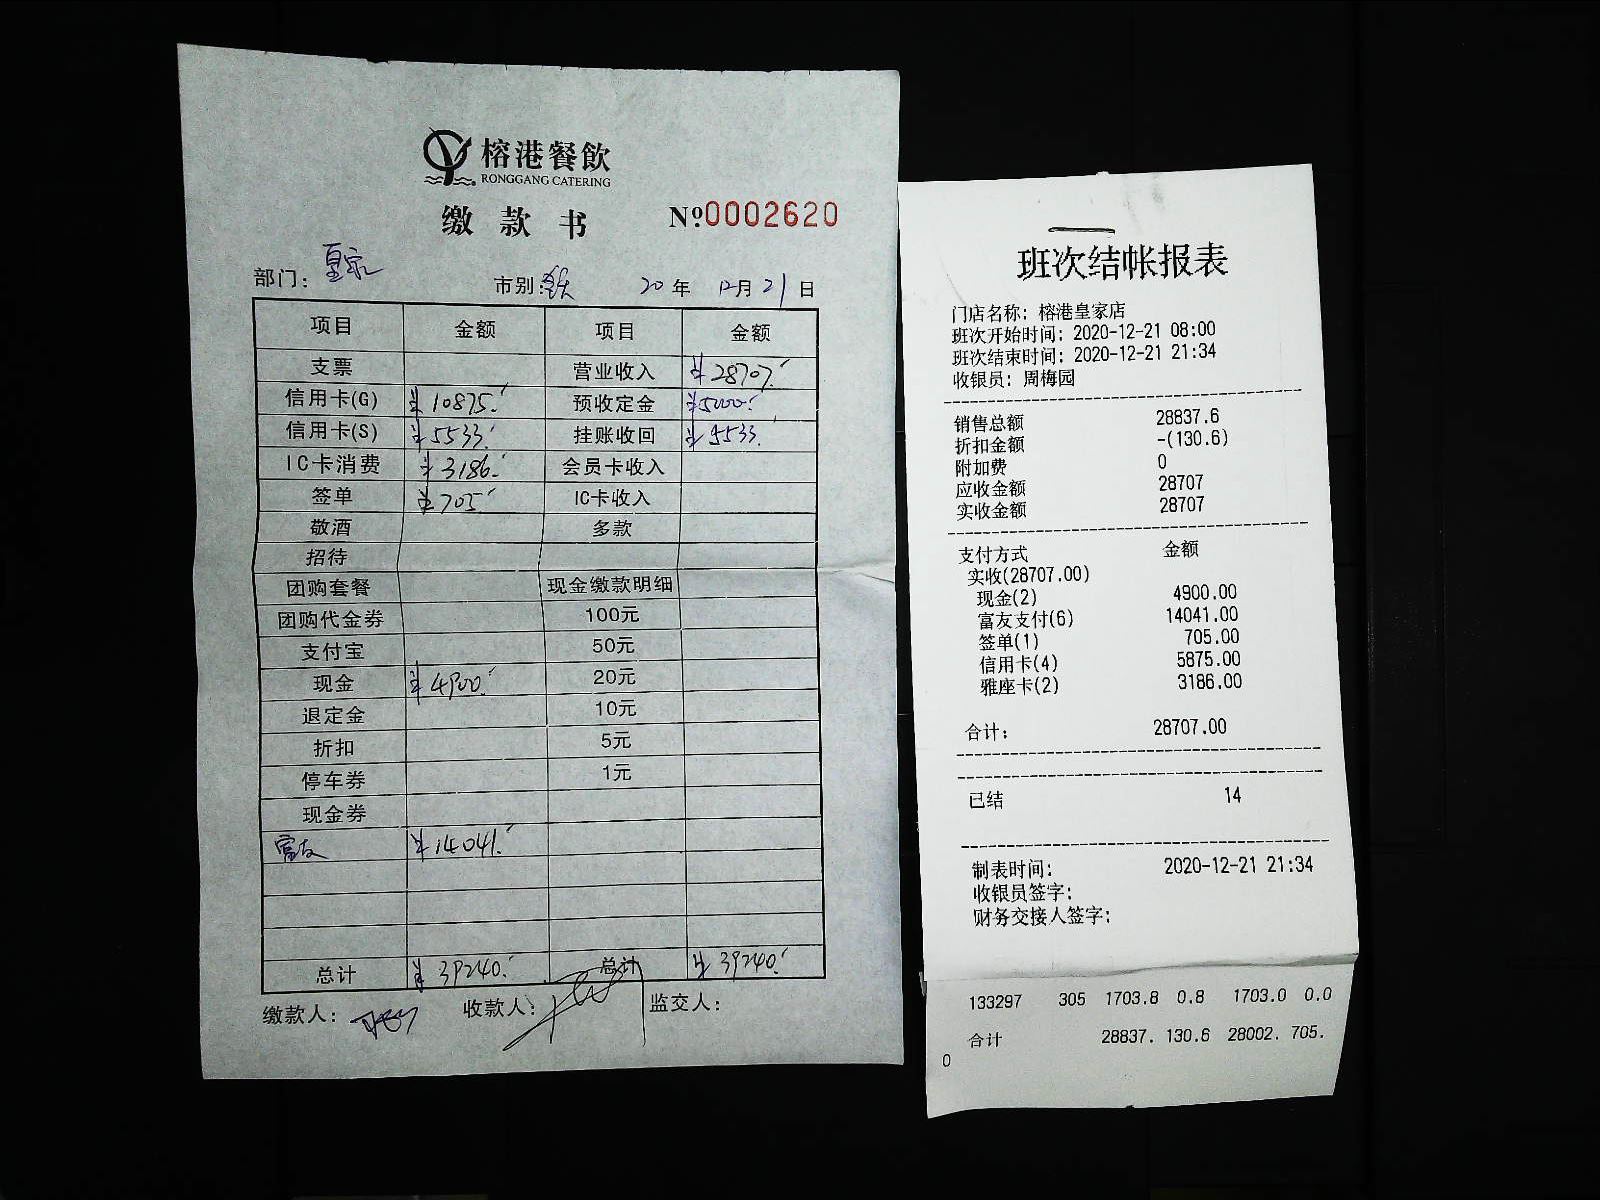 榕港餐飲
RONGGANG CATERING
缴款书 №0002620
部门: 皇家 市别: 20年 12月21日
项目 金额 项目 金额
支票 营业收入 ¥28707.
信用卡(G) ¥10875. 预收定金 ¥5000.
信用卡(S) ¥5533. 挂账收回 ¥5533.
IC卡消费 ¥3186. 会员卡收入
签单 ¥705 IC卡收入
敬酒 多款
招待
团购套餐 现金缴款明细
团购代金券 100元
支付宝 50元
现金 ¥4900. 20元
退定金 10元
折扣 5元
停车券 1元
现金券
富友 ¥14041.
总计 ¥39240. 总计 ¥39240.
缴款人: 收款人: 监交人:
班次结帐报表
门店名称: 榕港皇家店
班次开始时间: 2020-12-21 08:00
班次结束时间: 2020-12-21 21:34
收银员: 周梅园
销售总额 28837.6
折扣金额 -(130.6)
附加费 0
应收金额 28707
实收金额 28707
支付方式 金额
实收(28707.00)
现金(2) 4900.00
富友支付(6) 14041.00
签单(1) 705.00
信用卡(4) 5875.00
雅座卡(2) 3186.00
合计: 28707.00
已结 14
制表时间: 2020-12-21 21:34
收银员签字:
财务交接人签字:
133297 305 1703.8 0.8 1703.0 0.0
合计 28837. 130.6 28002. 705.
0